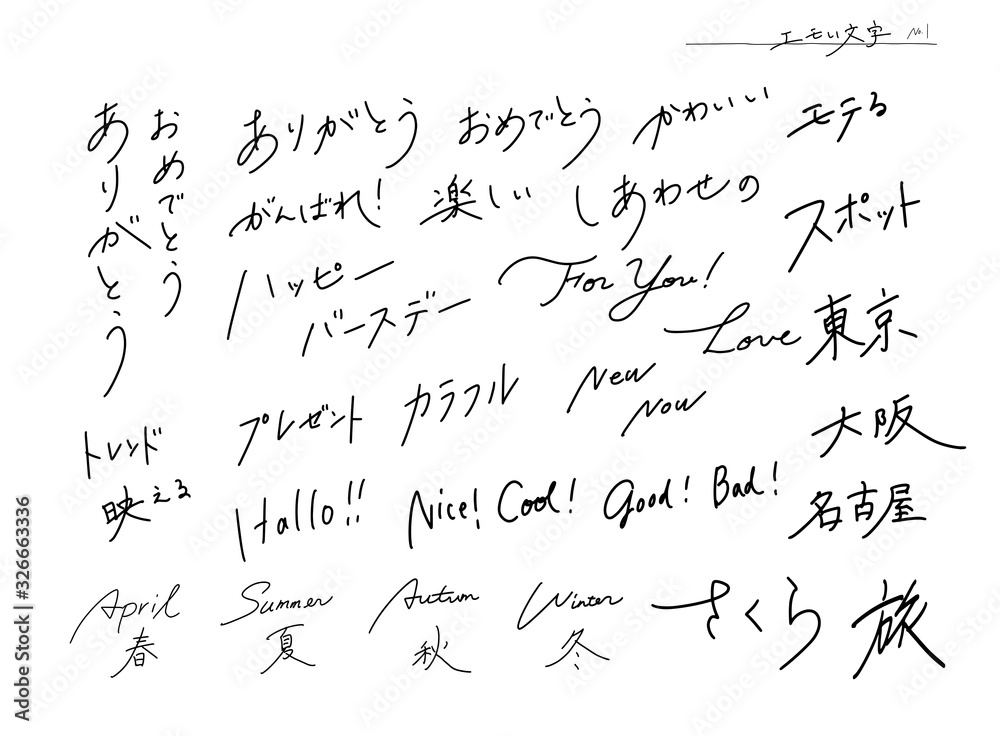 エモい文字 No.1
ありがとう
おめでとう
ありがとう おめでとう かわいい モテる
がんばれ! 楽しい しあわせの スポット
ハッピー
バースデー
For You!
Love 東京
プレゼント カラフル New
Now
トレンド
映える
大阪
Hallo!! Nice! Cool! Good! Bad! 名古屋
April Summer Autumn Winter さくら 旅
春 夏 秋 冬
Adobe Stock | #326663336